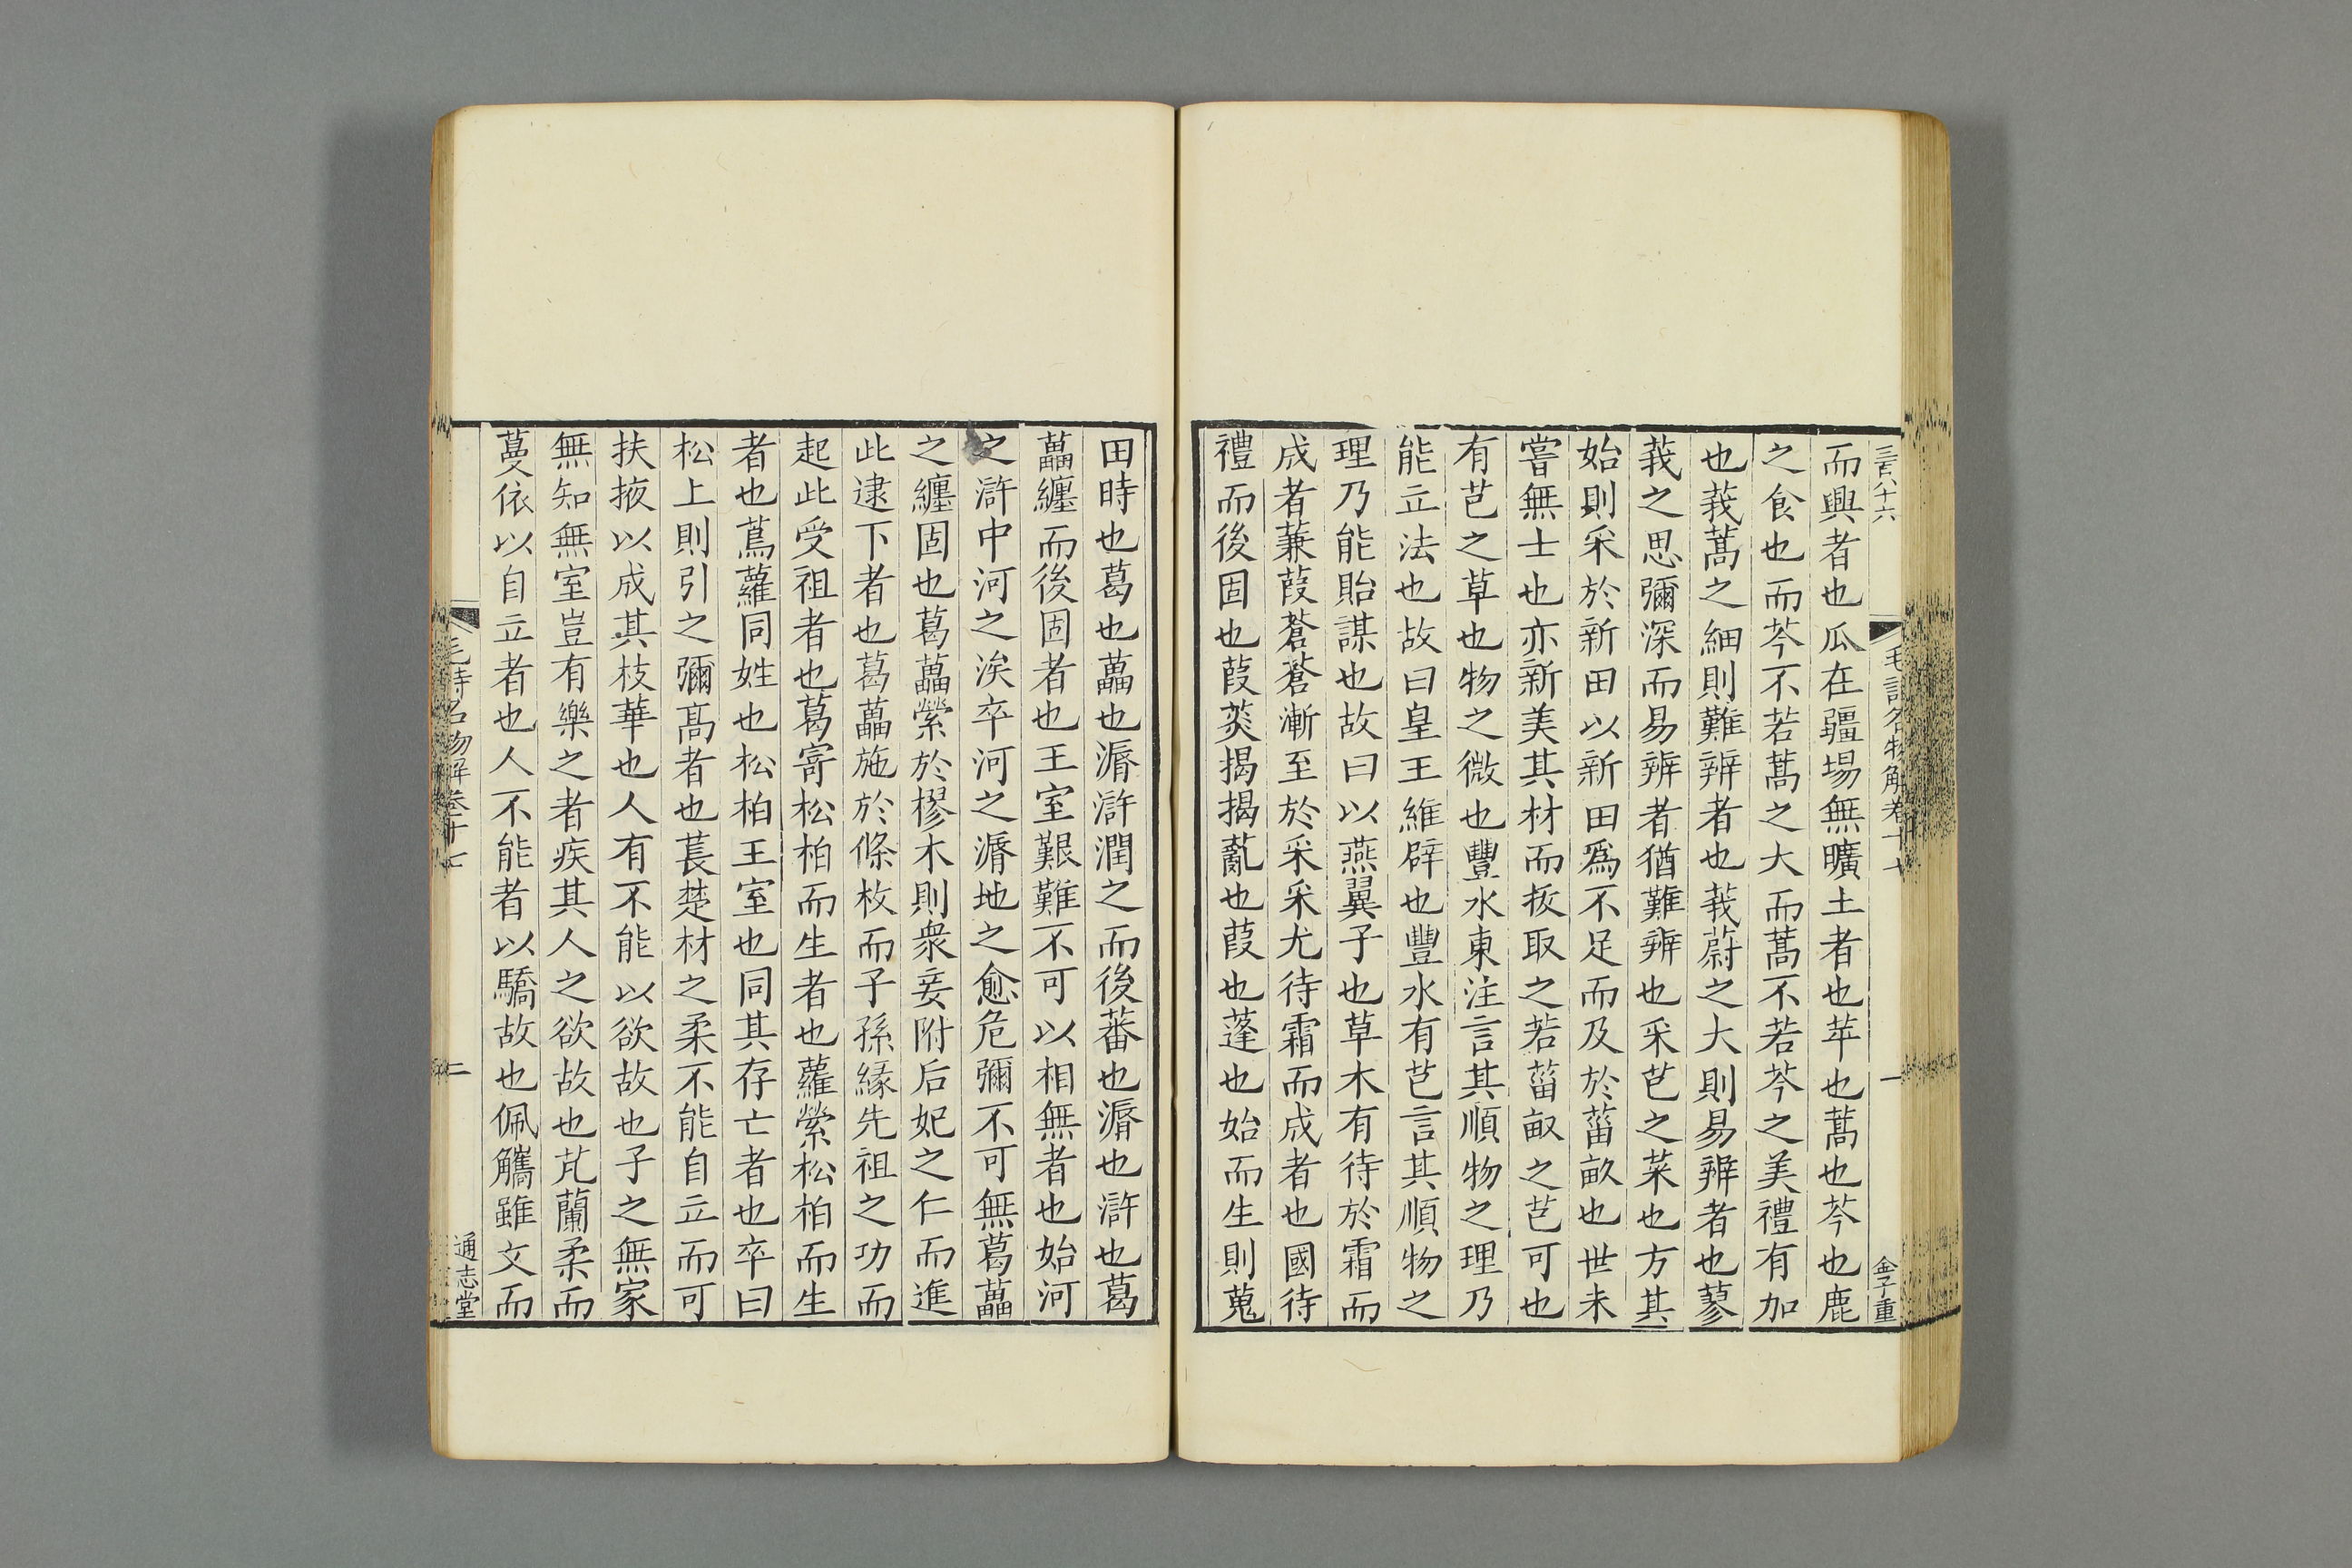 三百八十六
毛詩名物解卷十七
一
金子重
而興者也瓜在疆場無曠土者也苹也蒿也芩也鹿
之食也而芩不若蒿之大而蒿不若芩之美禮有加
也莪蒿之細則難辨者也莪蔚之大則易辨者也蓼
莪之思彌深而易辨者猶難辨也采芑之菜也方其
始則采於新田以新田爲不足而及於菑畝也世未
嘗無士也亦新美其材而扳取之若菑畝之芑可也
有芑之草也物之微也豐水東注言其順物之理乃
能立法也故曰皇王維辟也豐水有芑言其順物之
理乃能貽謀也故曰以燕翼子也草木有待於霜而
成者蒹葭蒼蒼漸至於采采尤待霜而成者也國待
禮而後固也葭菼揭揭亂也葭也蓬也始而生則蒐
田時也葛也藟也漘滸潤之而後蕃也漘也滸也葛
藟纏而後固者也王室艱難不可以相無者也始河
之滸中河之涘卒河之漘地之愈危彌不可無葛藟
之纏固也葛藟縈於樛木則衆妾附后妃之仁而進
此逮下者也葛藟施於條枚而子孫緣先祖之功而
起此受祖者也葛寄松柏而生者也蘿縈松柏而生
者也蔦蘿同姓也松柏王室也同其存亡者也卒曰
松上則引之彌高者也萇楚材之柔不能自立而可
扶掖以成其枝華也人有不能以欲故也子之無家
無知無室豈有樂之者疾其人之欲故也芄蘭柔而
蔓依以自立者也人不能者以驕故也佩觿雖文而
毛詩名物解卷十七
二
通志堂